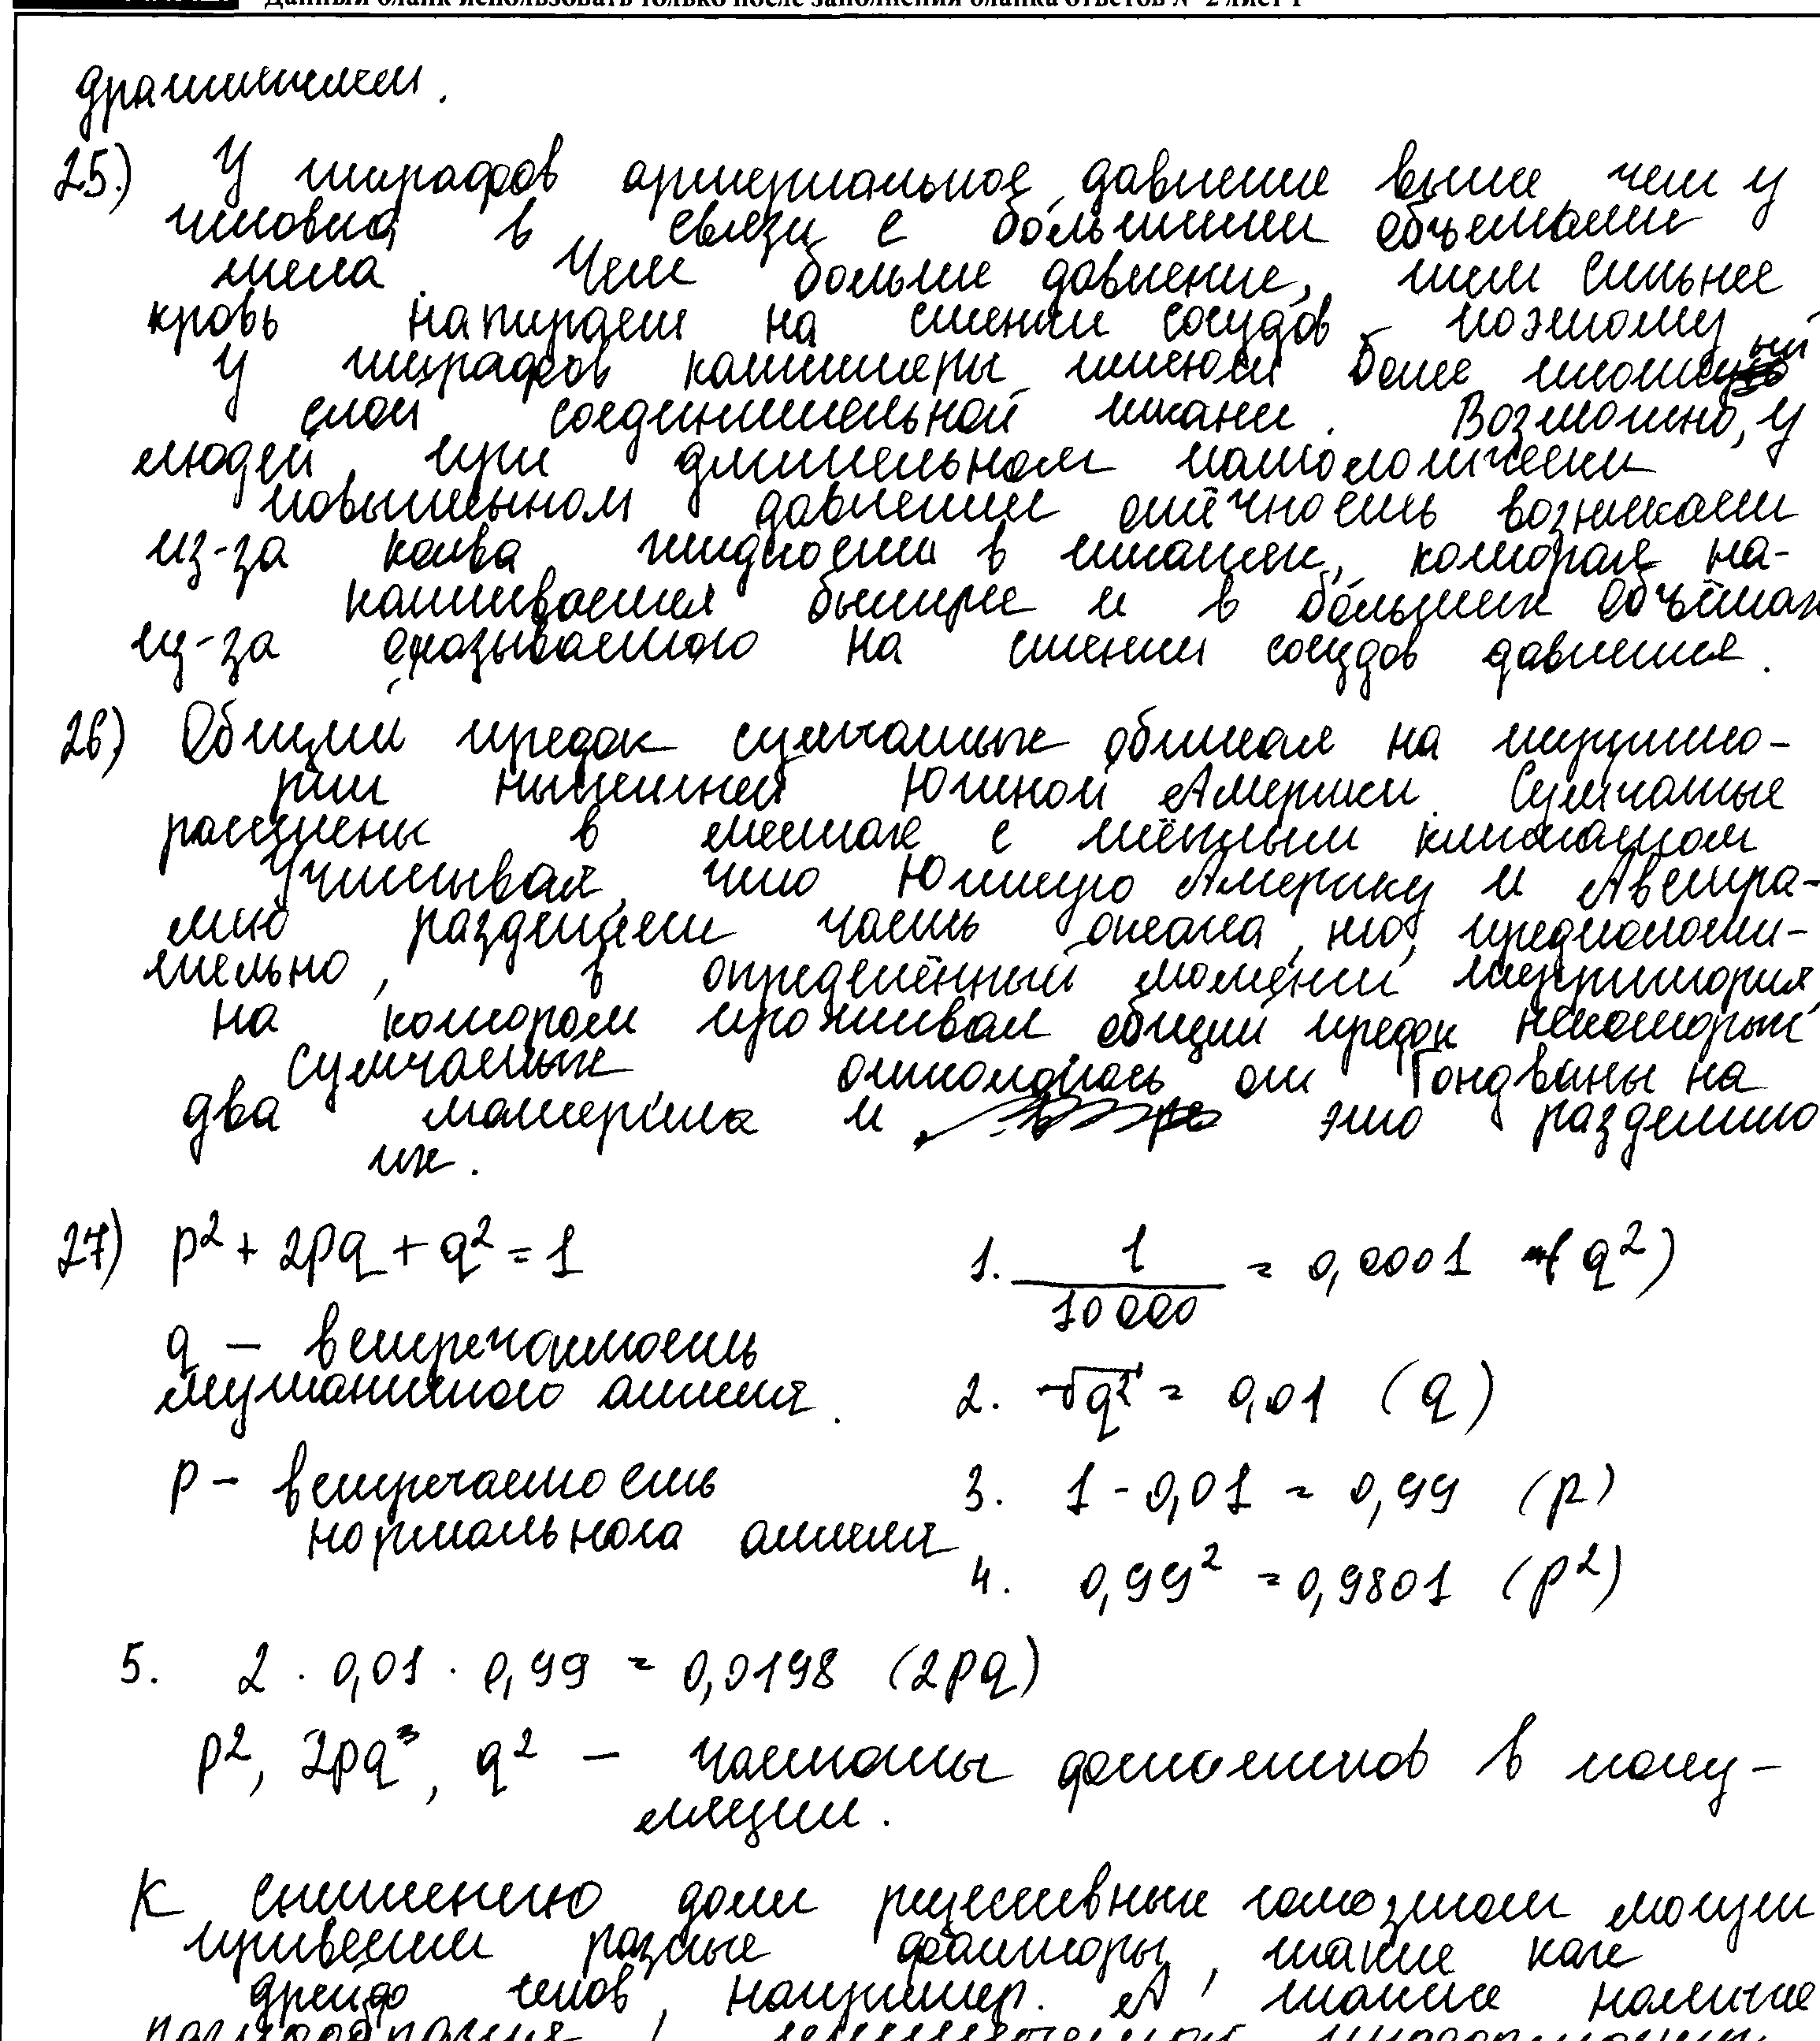 Данный бланк использовать только после заполнения бланка ответов № 2 лист 1
25.) У жирафов артериальное давление выше чем у
человека в связи с большими объемами
тела. Чем больше давление, тем сильнее
кровь напирает на стенки сосудов поэтому
у жирафов капилляры имеют более плотный
слой соединительной ткани. Возможно, у
людей при длительном патологически
повышенном давлении отёчность возникает
из-за жидкости в тканях, которая на-
капливается быстрее и в больших объёмах
из-за оказываемого на стенки сосудов давления.
26) Общий предок сумчатых обитал на террито-
рии нынешней Южной Америки. Сумчатые
в местах с тёплым климатом
Учитывая, что Южную Америку и Австра-
лию разделяет часть океана, то, предположи-
тельно, в определённый момент территория,
на котором проживал общий предок некоторых
сумчатых откололась от Гондваны на
два материка и это разделило
их.
27) p² + 2pq + q² = 1
1. 1/10 000 = 0,0001 (q²)
q - встречаемость
мутантного аллеля.
2. √q² = 0,01 (q)
p - встречаемость
нормального аллеля
3. 1 - 0,01 = 0,99 (p)
4. 0,99² = 0,9801 (p²)
5. 2 · 0,01 · 0,99 = 0,0198 (2pq)
p², 2pq, q² - частоты фенотипов в попу-
ляции.
К снижению доли рецессивных гомозигот могут
привести разные факторы, такие как
дрейф генов, например. А также наличие